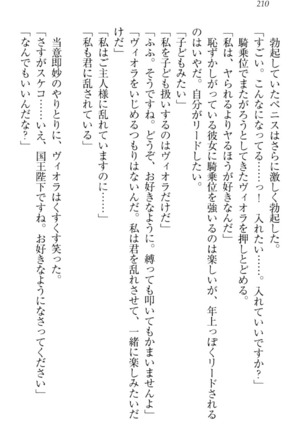 210
勃起していたペニスはさらに激しく勃起した。
「すごい。こんなになってる……っ！　入れたい……。入れていいですか？」
騎乗位でまたがろうとしてきたヴィオラを押しとどめる。
「私は、ヤられるよりヤるほうが好きなんだ」
恥ずかしがっている彼女に騎乗位を強いるのは楽しいが、年上っぽくリードされる
のはいやだ。自分がリードしたい。
「子どもみたい」
「私を子ども扱いするのはヴィオラだけだ」
「ふふ。そうですね。どうぞ、お好きなように。縛っても叩いてもかまいませんよ」
「ヴィオラをいじめるつもりはないんだ。私は君を乱れさせて、一緒に楽しみたいだ
けだ」
「私はご主人様に乱れていますのに……」
「私も君に乱されている」
当意即妙のやりとりに、ヴィオラはくすくす笑った。
「さすがスケコ……いえ、国王陛下ですね。お好きなようになさってください」
「なんでもいいんだな？」